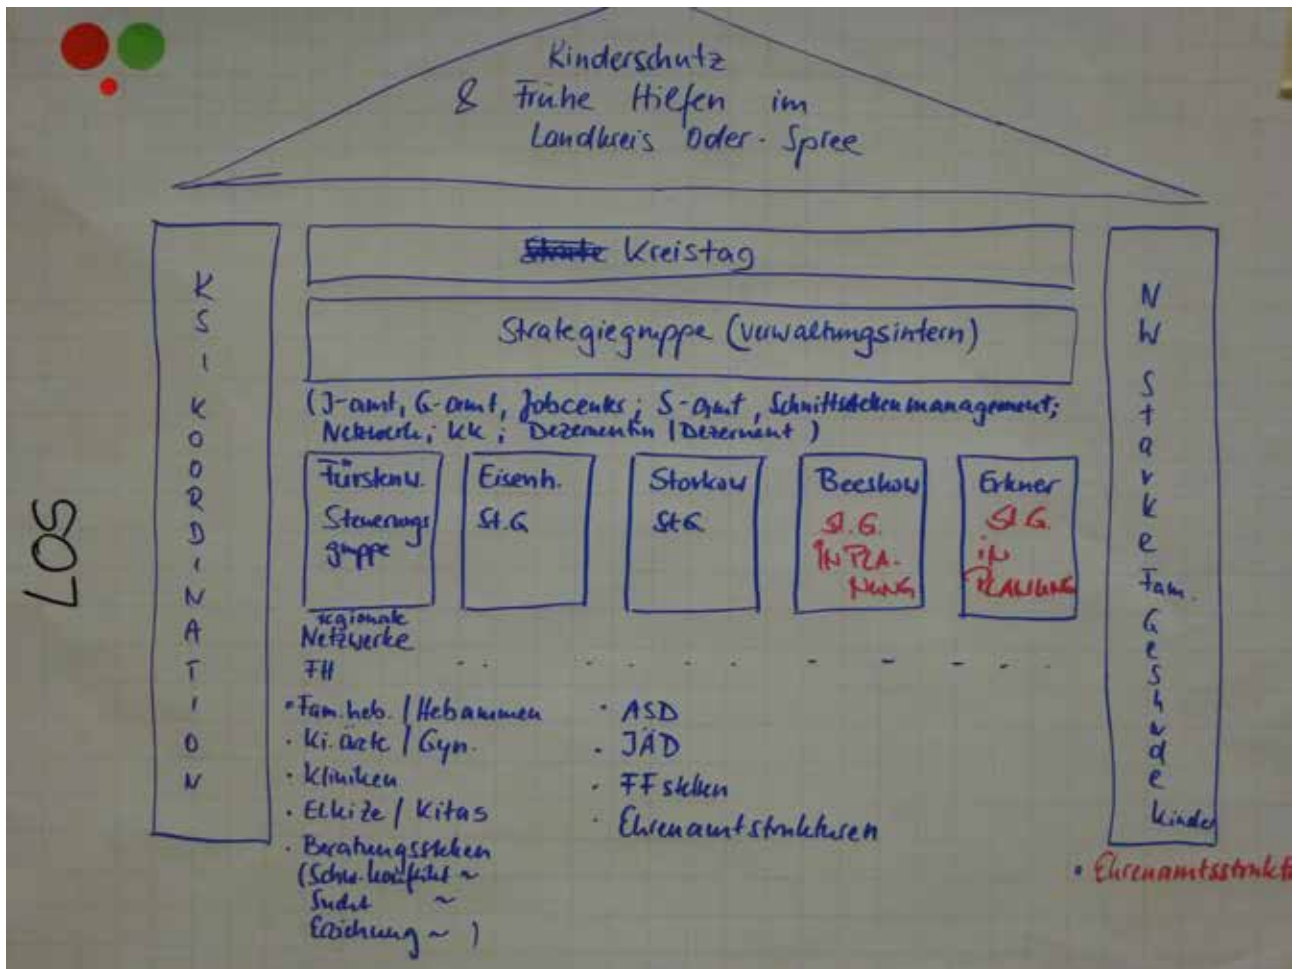 Kinderschutz
& Frühe Hilfen im
Landkreis Oder-Spree
Kreistag
Strategiegruppe (verwaltungsintern)
(J-amt, G-amt, Jobcenter; S-amt, Schnittstellenmanagement;
Netzwerk; KK; Dezernentin / Dezernent)
Fürstenw.
Steuerungs
gruppe
Eisenh.
St.G
Storkow
StG
Beeskow
St.G.
IN PLA-
NUNG
Erkner
St.G.
iN
PLANUNG
regionale
Netzwerke
FH
• Fam.heb. / Hebammen
· Ki.ärzte / Gyn.
· Kliniken
· Elkize / Kitas
· Beratungsstellen
(Schw.konflikt ~
Sucht ~
Erziehung ~ )
· ASD
· JÄD
· FF stellen
· Ehrenamtstrukturen
KSI KOORDINATION
NW Starke Fam. Gesunde Kinder
• Ehrenamtsstrukt
LOS